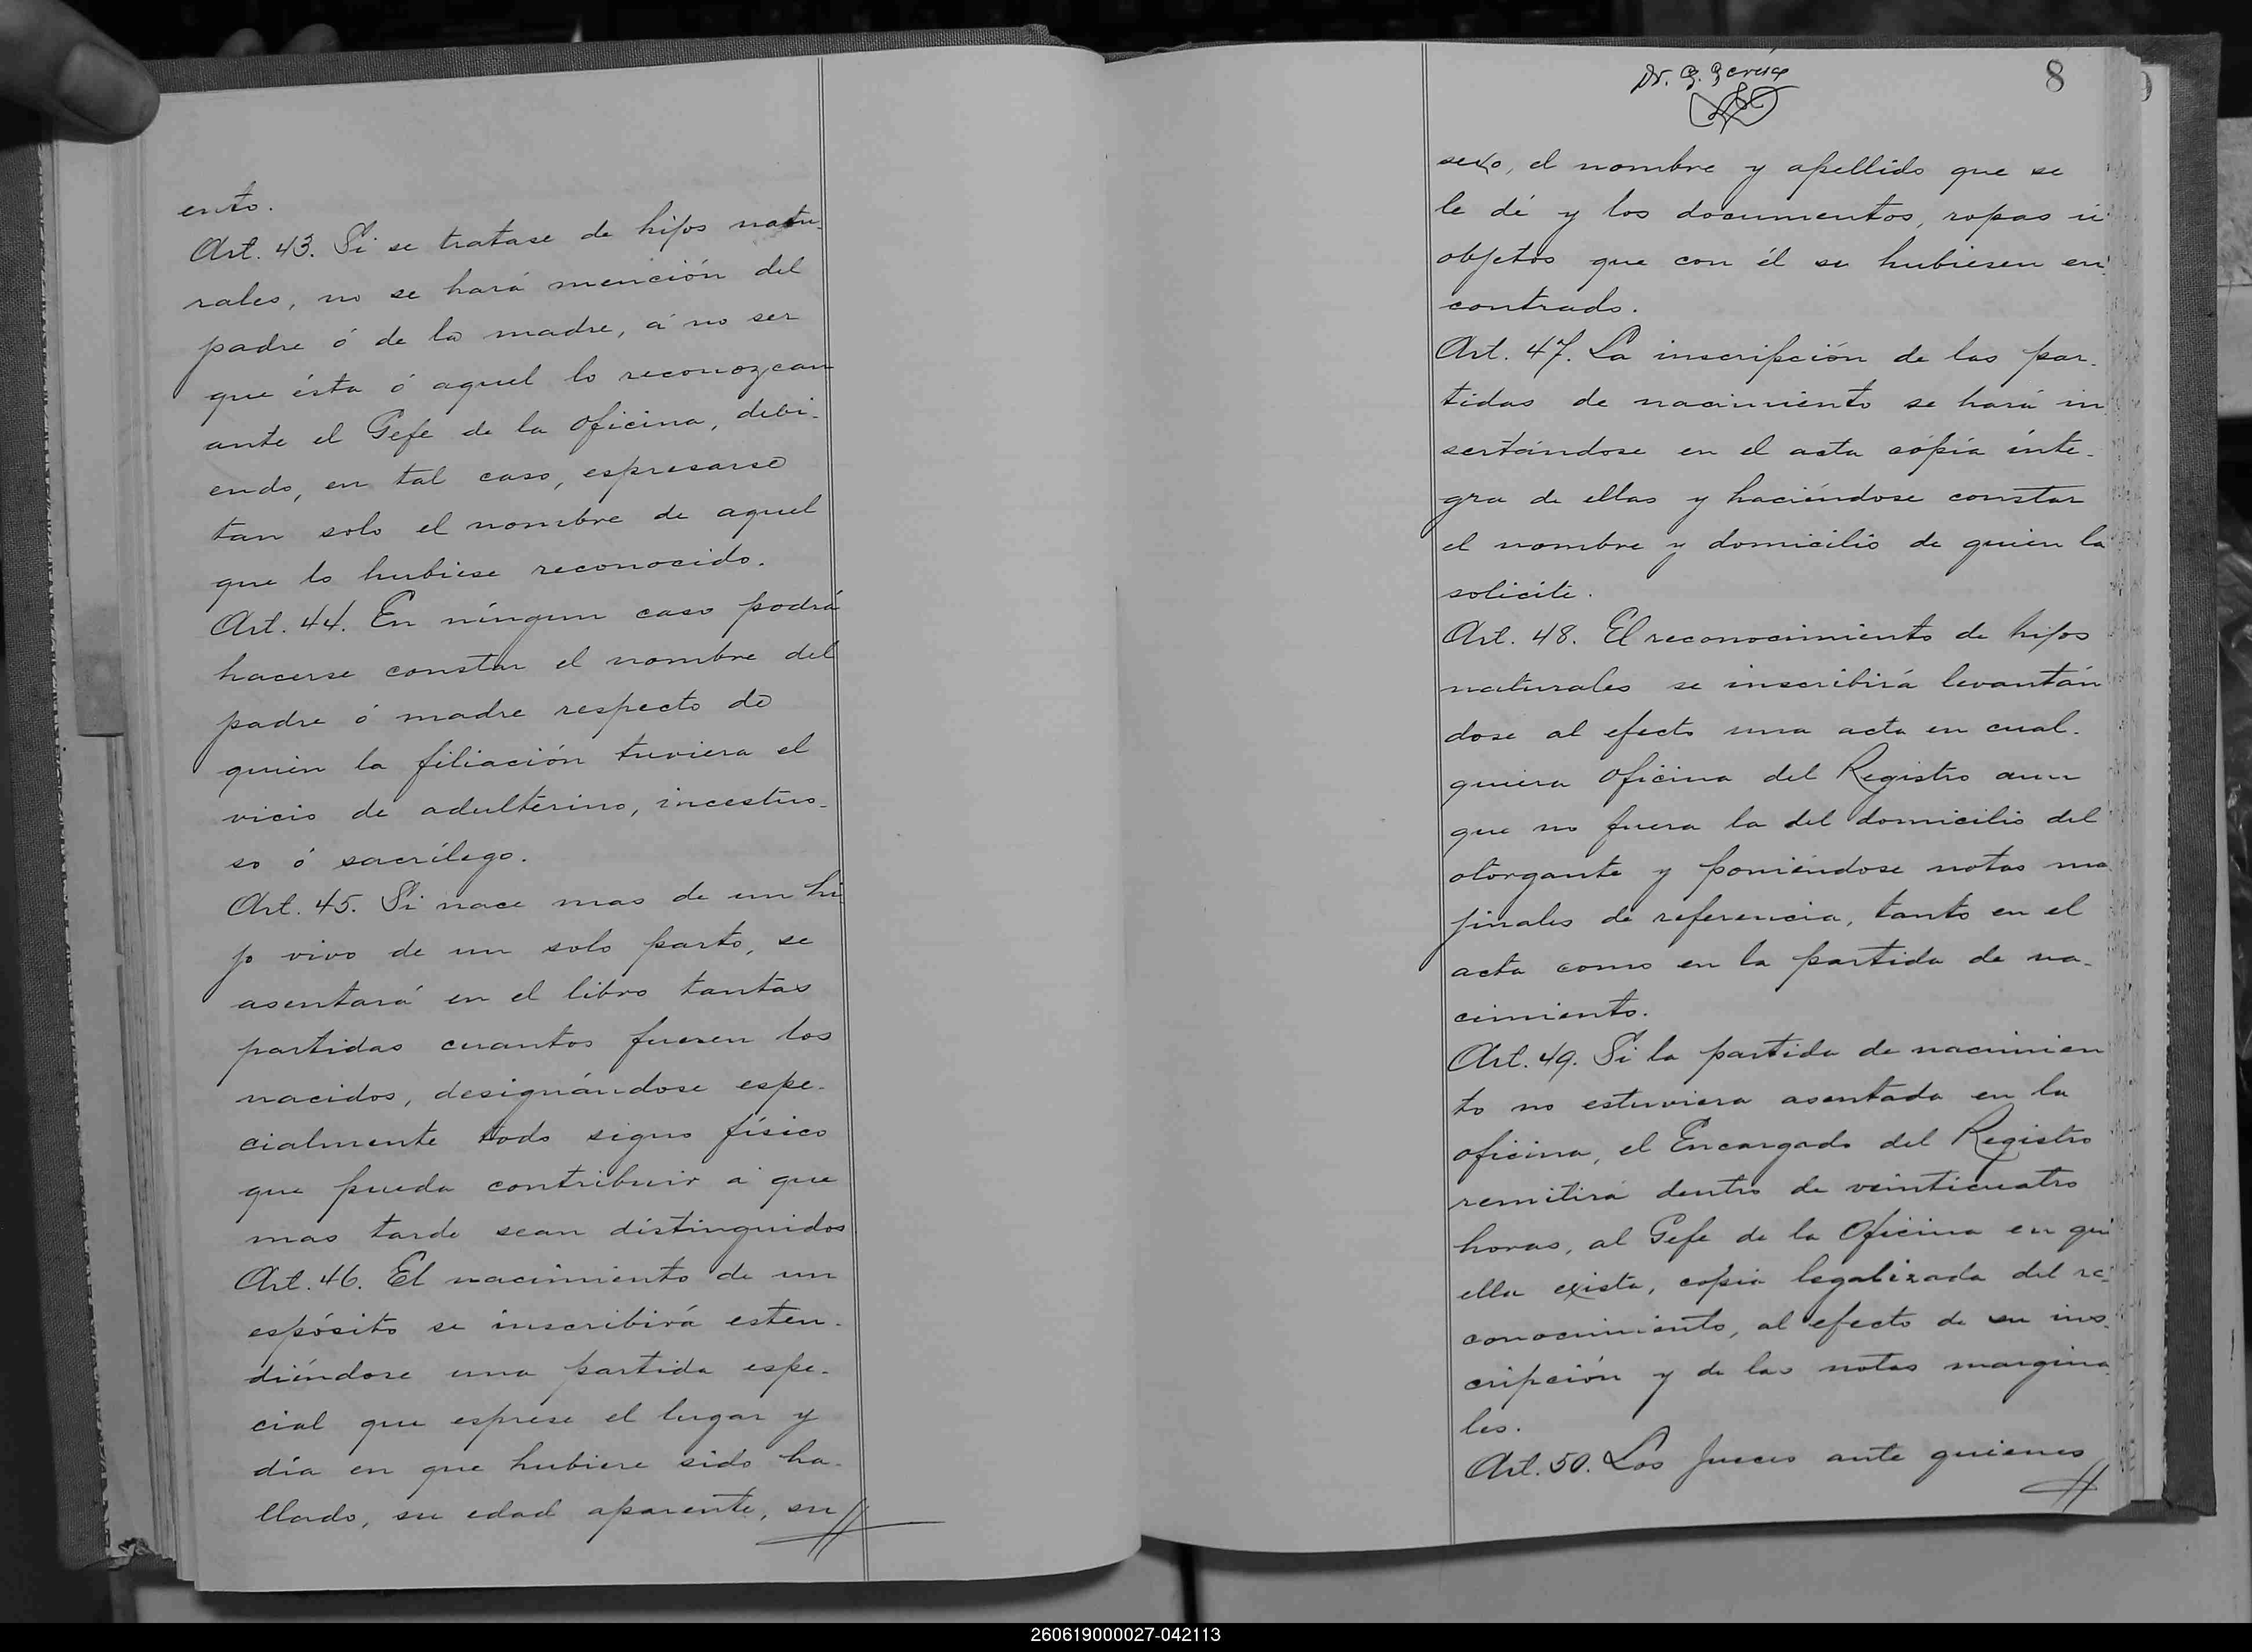 ento.
Art. 43. Si se tratase de hijos natu-
rales, no se hará mención del
padre ó de la madre, á no ser
que ésta ó aquel lo reconozcan
ante el Gefe de la oficina, debi-
endo, en tal caso, espresarse
tan solo el nombre de aquel
que lo hubiese reconocido.
Art. 44. En níngun caso podrá
hacerse constar el nombre del
padre ó madre respecto de
quien la filiación tuviera el
vicio de adulterino, incestuo-
so ó sacrílego.
Art. 45. Si nace mas de un hi
jo vivo de un solo parto, se
asentará en el libro tantas
partidas cuantos fuesen los
nacidos, designándose espe-
cialmente todo signo físico
que pueda contribuir á que
mas tarde sean distinguidos
Art. 46. El nacimiento de un
espósito se inscribirá esten-
diéndose una partida espe-
cial que esprese el lugar y
día en que hubiere sido ha-
llado, su edad aparente, su
Dr. G. García
8
sexo, el nombre y apellido que se
le dé y los documentos, ropas ú
objetos que con él se hubiesen en
contrado.
Art. 47. La inscripción de las par-
tidas de nacimiento se hará in
sertándose en el acta cópia ínte-
gra de ellas y haciéndose constar
el nombre y domicilio de quien la
solicite.
Art. 48. El reconocimiento de hijos
naturales se inscribirá levantán
dose al efecto una acta en cual-
quiera oficina del Registro aun
que no fuera la del domicilio del
otorgante y poniéndose notas ma
jinales de referencia, tanto en el
acta como en la partida de na-
cimiento.
Art. 49. Si la partida de nacimien
to no estuviera asentada en la
oficina, el Encargado del Registro
remitirá dentro de veinticuatro
horas, al Gefe de la Oficina en que
ella exista, copia legalizada del re-
conocimiento, al efecto de su ins-
cripción y de las notas margina
les.
Art. 50. Los Jueces ante quienes
260619000027-042113